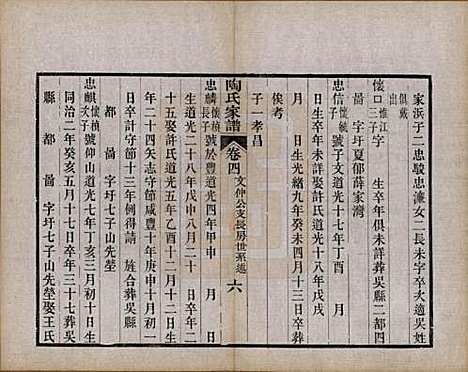 家浜子二忠駿忠濂女二長未字卒次適吳姓
俱戴出
懷口三惟江子 字 生卒年俱未詳葬吳縣二都四
啚 字圩夏郁薛家灣
忠信懷毓子 字子文道光十七年丁酉 月 日
生卒年未詳娶許氏道光十八年戊戌 月
日生光緒九年癸未四月十三日卒葬
俟考
子一孝昌
陶氏家譜 卷四 文仲公支長房世系述 六
忠麟懷楨長子 號 於道光四年甲申 月 日
生道光二十八年戊申八月二十 日卒
十五娶許氏道光五年乙酉十二月
年二十四矢志守節咸豐十年庚申十月初一
日卒計守節十三年例得請 旌合葬吳縣
都 啚 字圩七子山先塋
忠麒懷楨次子 號仰山道光七年丁亥三月初十日生
同治二年癸亥五月十七日卒年三十七葬吳
縣 都 啚 字圩七子山先塋娶王氏